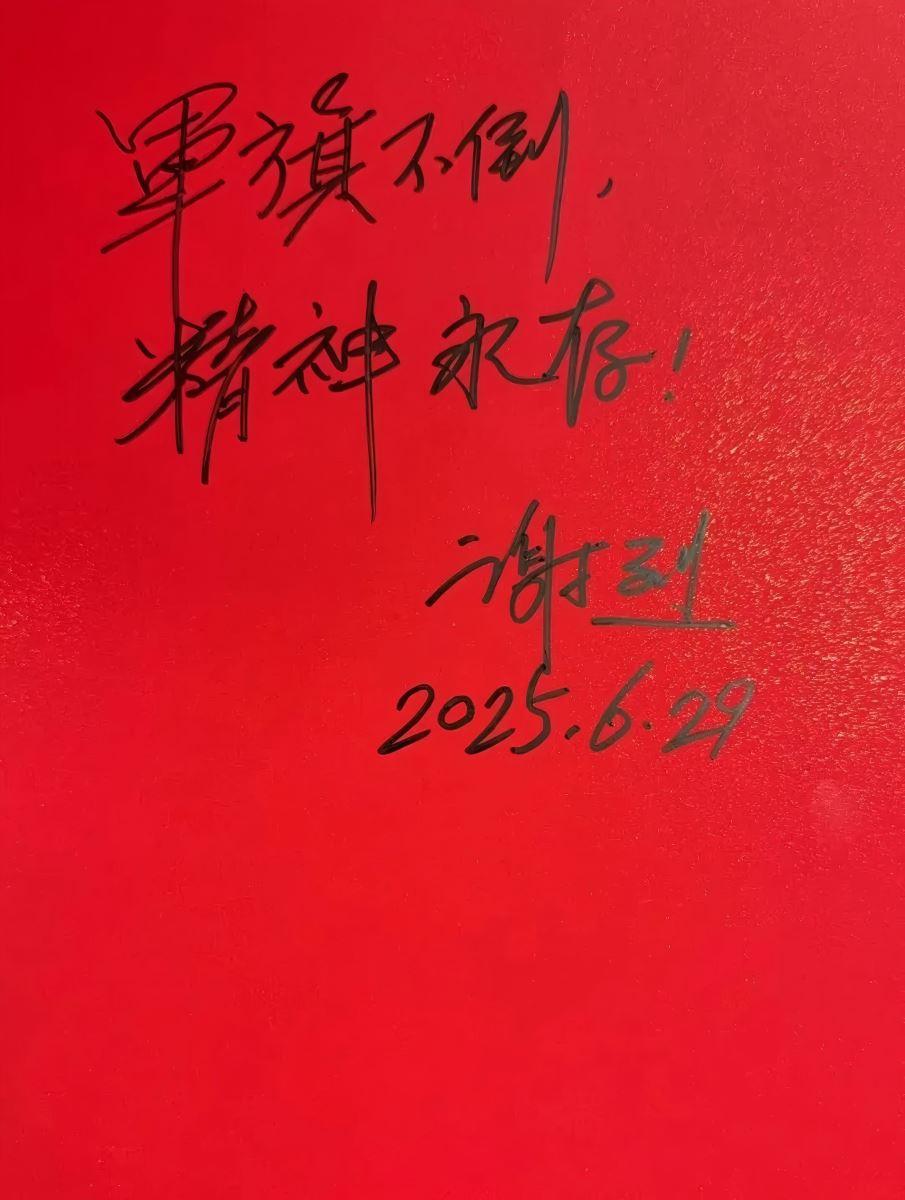 軍旗不倒,
精神永存!
谢
2025.6.29